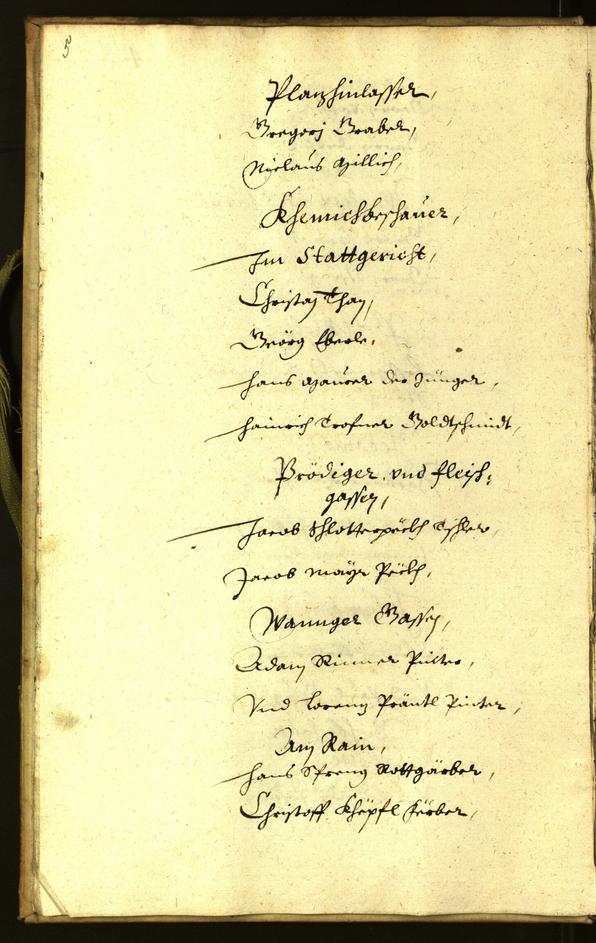 5
Plazhinlasser,
Gregorj Graber,
Niclaus Hillich,
Khemichbeschauer,
Im Stattgericht,
Christof Thaj,
Geörg Eberle,
hans Maurer der Jünger,
hainrich Trofner Goldtschmidt,
Prödiger und fleisch:
gassen,
Jacob Schlotterpöckh Tischler,
Jacob Mayr Pöckh,
Wannger Gassen,
Adam Rinner Pinter,
Und Lorenz Präntl Pinter,
Am Rain,
hans Spreng Rottgärber,
Christoff Khöpfl Färber,